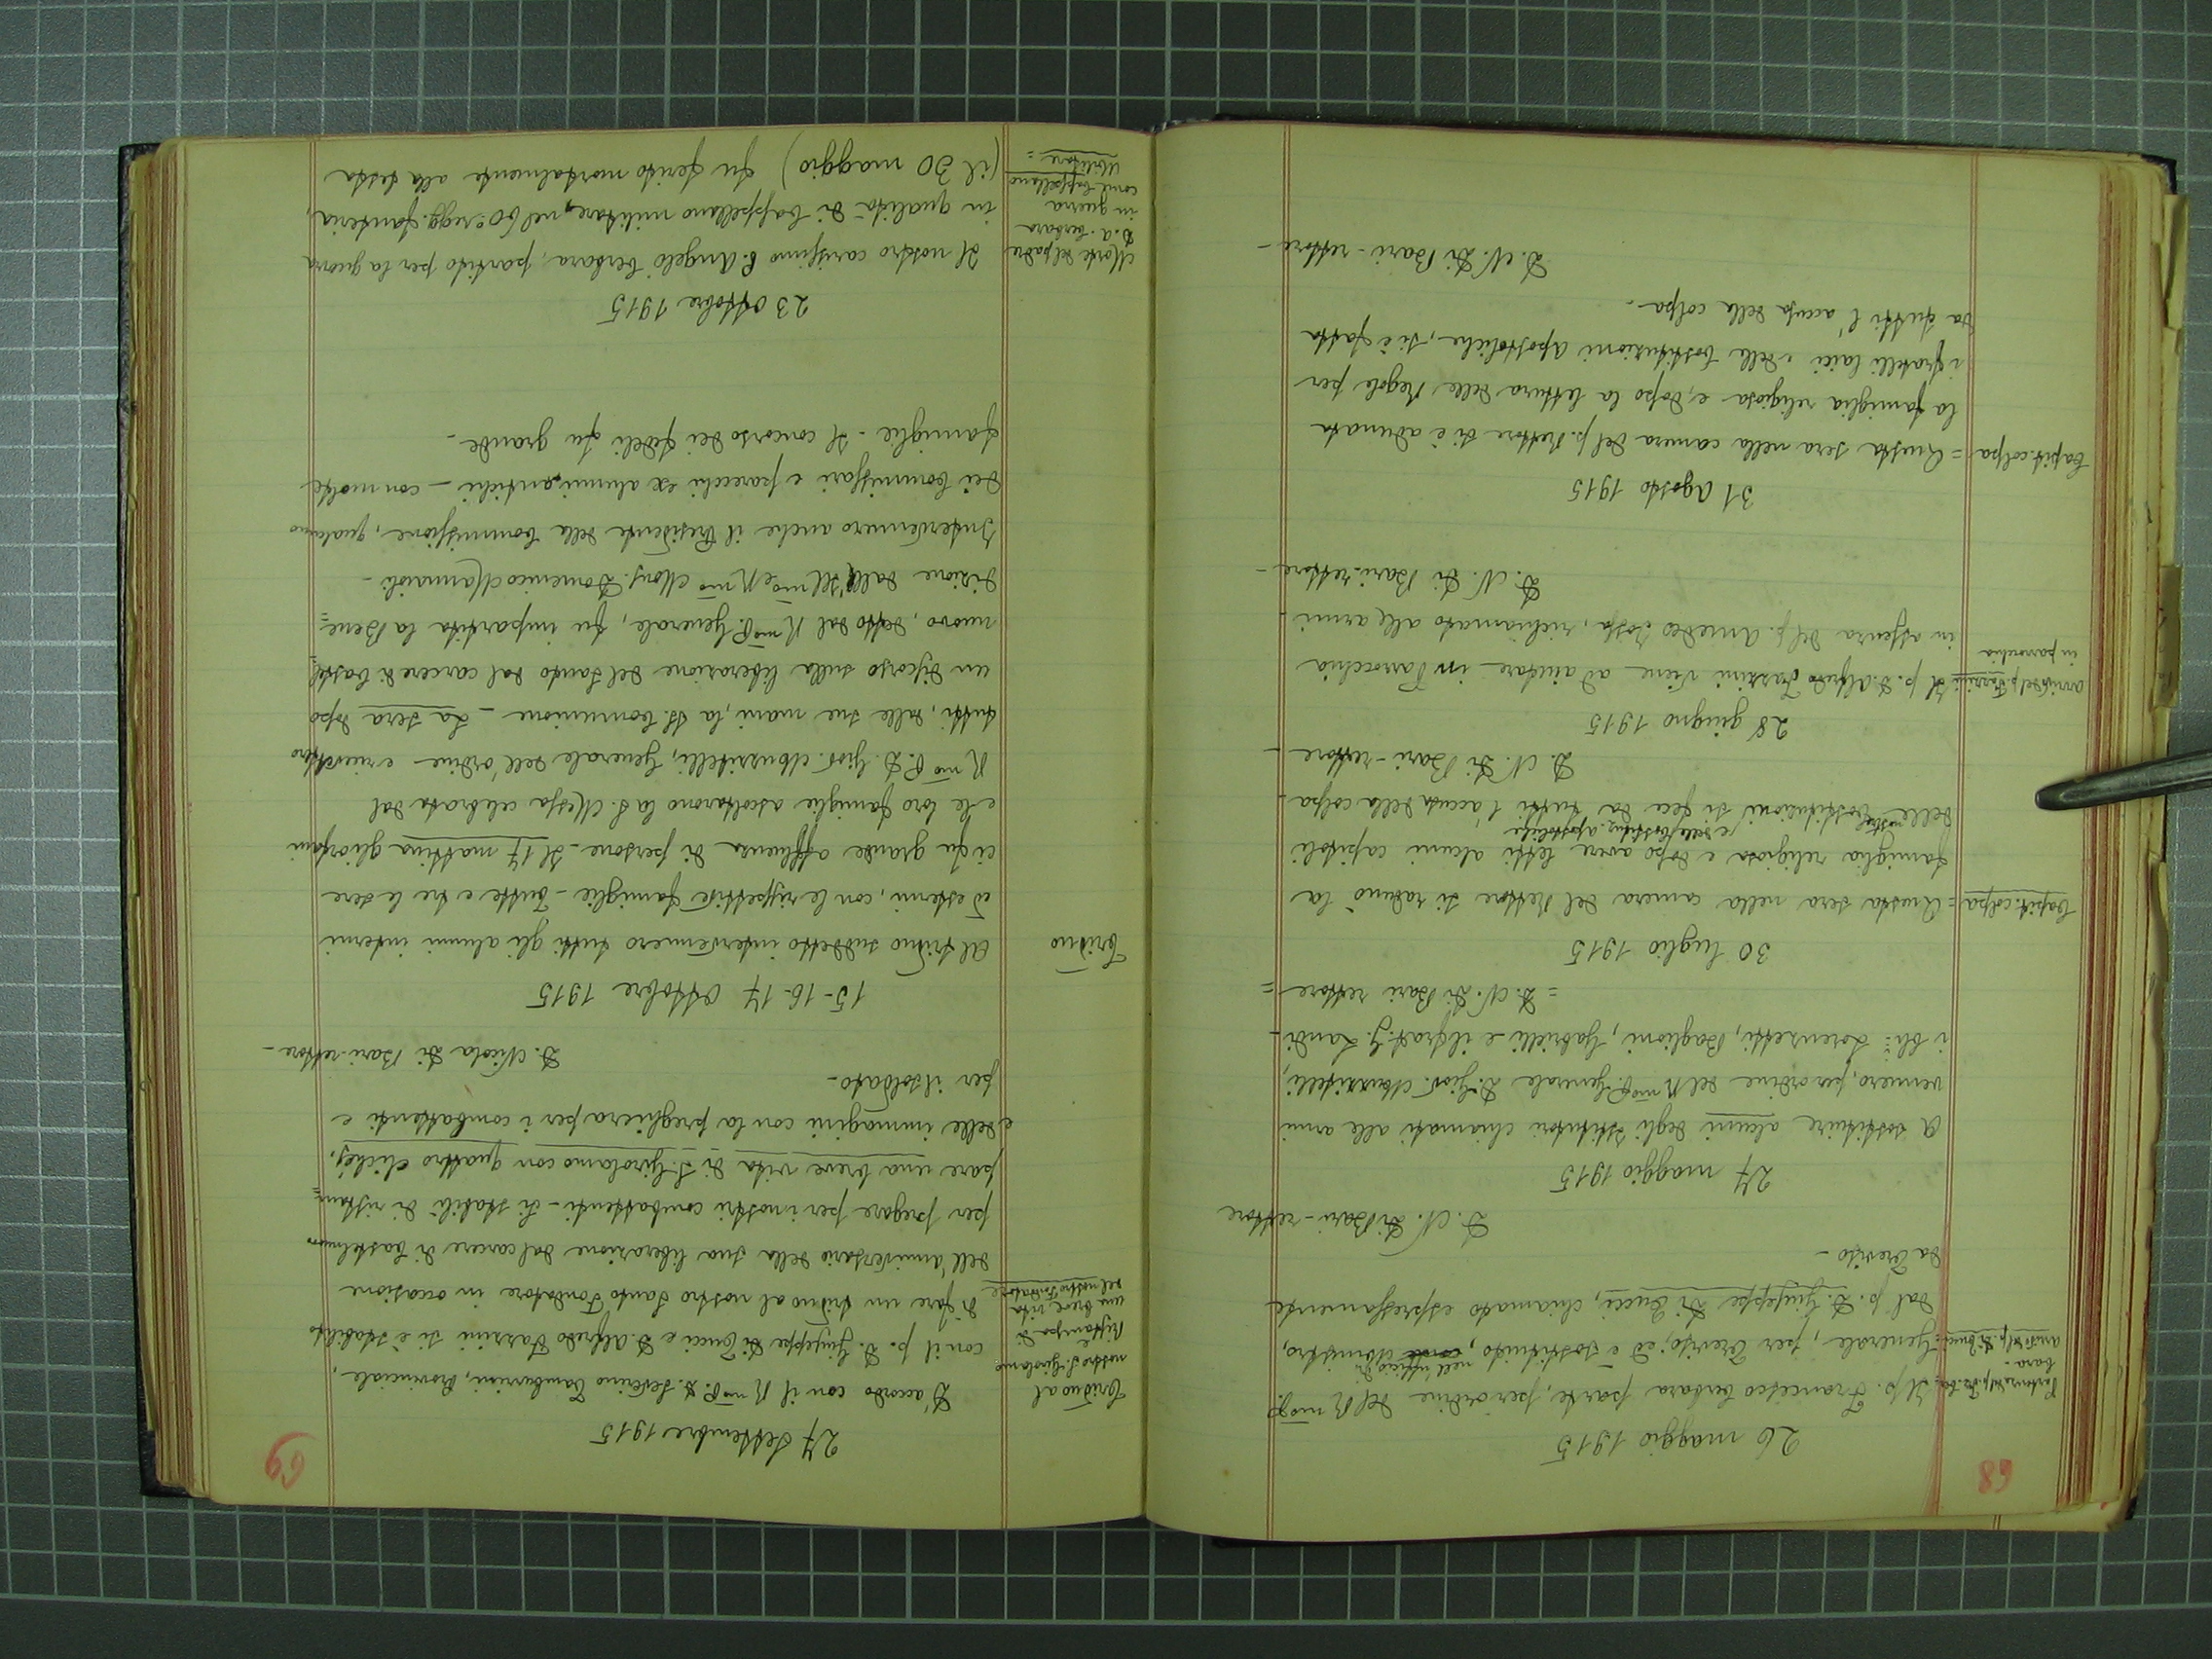 68
26 maggio 1915
Partenza del p. Fr. Cer-
bara -
arrivo del p. Di Tucci =
Il p. Francesco Cerbara parte, per ordine del R.mo P.
Generale, per Treviso; ed è sostituito, nell'ufficio di Ministro,
dal p. D. Giuseppe Di Tucci, chiamato espressamente
da Treviso -
D. N. Di Bari - rettore
27 maggio 1915
A sostituire alcuni degli Istitutori chiamati alle armi
vennero, per ordine del R.mo P. Generale D. Giov. Muzzitelli,
i Ch.ci Lorenzetti, Baglioni, Gabrielli e il frat. G. Landi -
= D. N. Di Bari rettore =
30 luglio 1915
Capit. colpa =
Questa sera nella camera del Rettore si radunò la
famiglia religiosa e dopo avere letti alcuni capitoli
delle nostre Costituzioni e delle Costituz. apostoliche si fece da tutti l'accusa della colpa -
D. N. Di Bari - rettore -
28 giugno 1915
arrivo del p. Fazzini
in parrocchia
Il p. D. Alfredo Fazzini viene ad aiutare in Parrocchia
in assenza del p. Amedeo Jossa, richiamato alle armi -
D. N. Di Bari - rettore -
31 Agosto 1915
Capit. colpa =
Questa sera nella camera del p. Rettore si è adunata
la famiglia religiosa e, dopo la lettura delle Regole per
i fratelli laici e delle Costituzioni Apostoliche, si è fatta
da tutti l'accusa della colpa -
D. N. Di Bari - rettore -
69
27 Settembre 1915
Triduo al
nostro S. Girolamo
e
Ristampa di
una breve vita
del nostro Fondatore
D'accordo con il R.mo P. D. Severino Tamburrini, Provinciale,
con il p. D. Giuseppe Di Tucci e D. Alfredo Fazzini si è stabilito
di fare un triduo al nostro Santo Fondatore in occasione
dell'anniversario della sua liberazione dal carcere di Castelnuovo
per pregare per i nostri combattenti - Si stabilì di ristam=
pare una breve vita di S. Girolamo con quattro clichés,
e delle immagini con la preghiera per i combattenti e
per il soldato -
D. Nicola Di Bari - rettore -
15-16-17 Ottobre 1915
Triduo
Al triduo suddetto intervennero tutti gli alunni interni
ed esterni, con le rispettive famiglie - Tutte e tre le sere
ci fu grande affluenza di persone - Il 17 mattina gli orfani
e le loro famiglie ascoltarono la S. Messa celebrata dal
R.mo P. D. Giov. Muzzitelli, Generale dell'ordine - e ricevettero
tutti, dalle sue mani, la SS. Comunione - La sera dopo
un discorso sulla liberazione del Santo dal carcere di Castel=
nuovo, detto dal R.mo P. Generale, fu impartita la Bene=
dizione dall'Ill.mo e R.mo Mons. Domenico Mannaioli -
Intervennero anche il Presidente della Commissione, qualcuno
dei Commissari e parecchi ex alunni, antichi - con molte
famiglie - Il concorso dei fedeli fu grande -
23 Ottobre 1915
Morte del padre
D. A. Cerbara
in guerra
come Cappellano
Militare =
Il nostro carissimo P. Angelo Cerbara, partito per la guerra
in qualità di Cappellano militare, nel 60° regg. fanteria,
(il 30 maggio) fu ferito mortalmente alla testa